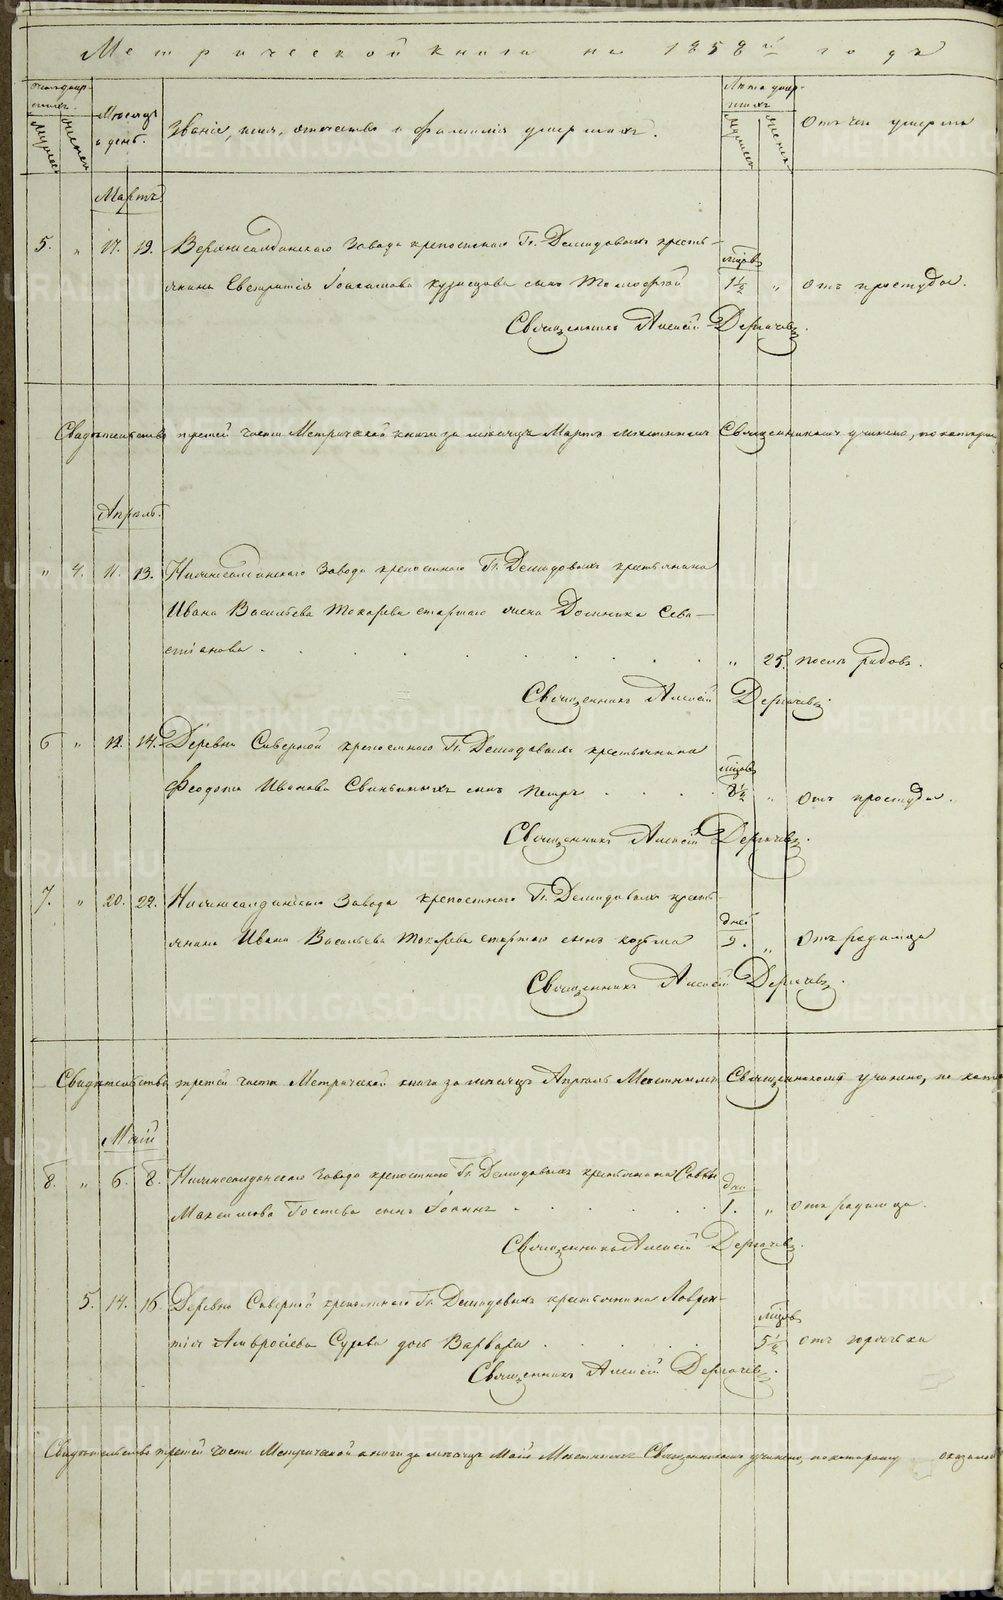 Метрической книги на 1858й годъ
Счетъ умер-
шихъ.
Мужеск
Женск
Месяцъ
и день.
Званіе, имя, отчество и фамилія умершихъ.
Лета умер-
шихъ
Мужеск
Женск
Отъ чего умерла
Мартъ
5. " 17. 19. Верхнесалдинскаго завода крепостнаго Гг. Демидовыхъ кресть-
янина Евстратія Іоакимова Кузнецова сынъ Тимофей месяцов 1½ " Отъ простуды.
Священникъ Алексій Дерначевъ.
Свидетельство третей части Метрической книги за месяцъ Мартъ местнымъ Священникомъ учинено, по которому
Апрель.
" 4. 11. 13. Нижнесалдинскаго завода крепостнаго Гг. Демидовыхъ крестьянина
Ивана Васильева Токарева старшаго жена Домника Сева-
стіанова . " 25. После родовъ.
Священникъ Алексій Дерначевъ.
6 " 12. 14. Деревни Северной крепостнаго Гг. Демидовыхъ крестьянина
Феодота Иванова Свиньиныхъ сынъ Петръ . месяцов 8½ " Отъ простуды.
Священникъ Алексій Дерначевъ.
7. " 20. 22. Нижнесалдинскаго завода крепостнаго Гг. Демидовыхъ кресть-
янина Ивана Васильева Токарева старшаго сынъ Козьма дней 9. " Отъ родимца
Священникъ Алексій Дерначевъ.
Свидетельство третей части Метрической книги за месяцъ Апрель Местнымъ Священникомъ учинено, по кото
Май
8. " 6. 8. Нижнесалдинскаго завода крепостнаго Гг. Демидовыхъ крестьянина Саввы
Максимова Гостева сынъ Іоаннъ . дни 1. " Отъ родимца.
Священникъ Алексій Дерначевъ.
5. 14. 16. Деревни Северной крепостнаго Гг. Демидовыхъ крестьянина Лаврен-
тія Амвросіева Сурова дочь Варвара . месяцов 5½ отъ горячки
Священникъ Алексій Дерначевъ.
Свидетельство третей части Метрической книги за месяцъ Май Местнымъ Священникомъ учинено, по которому оказалось
METRIKI.GASO-URAL.RU